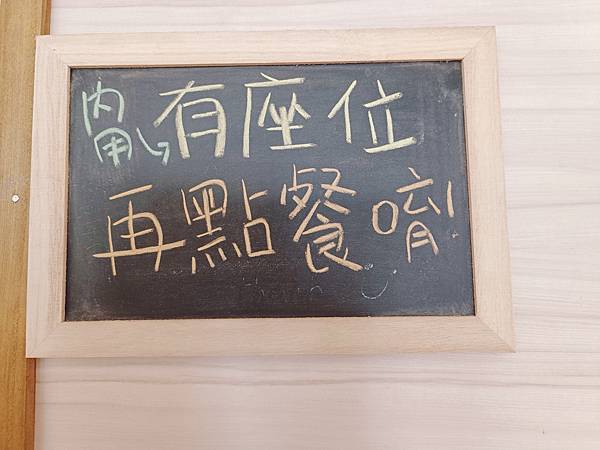 內用有座位
再點餐唷!